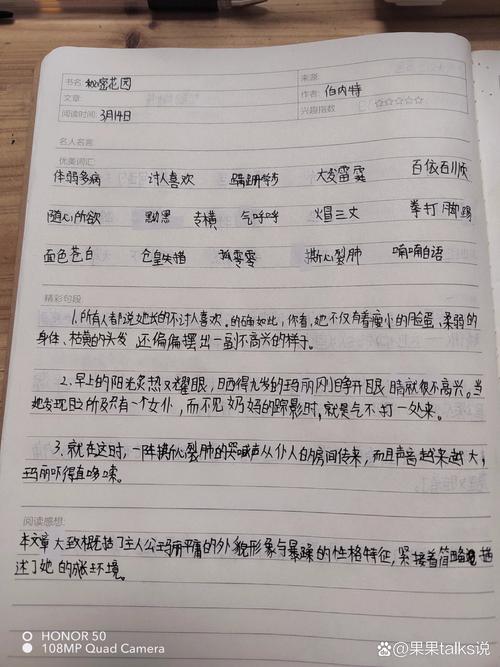 书名: 秘密花园
来源:
文章:
作者: 伯内特
阅读时间: 3月14日
兴趣指数: ☆☆☆☆☆
名人名言
优美词汇
体弱多病 讨人喜欢 蹒跚学步 大发雷霆 百依百顺
随心所欲 黝黑 专横 气呼呼 火冒三丈 拳打脚踢
面色苍白 仓皇失措 孤零零 撕心裂肺 喃喃自语
精彩句段
1.所有人都说她长的不讨人喜欢。的确如此,你看,她不仅有着瘦小的脸蛋,柔弱的
身体、枯黄的头发 还偏偏摆出一副不高兴的样子。
2.早上的阳光炙热又耀眼,日晒得九岁的玛丽刚睁开眼睛就很不高兴。当
她发现旁边只有一个女仆,而不见奶妈的踪影时,就是气不打一处来。
3.就在这时,一阵撕心裂肺的哭喊声从仆人的房间传来,而且声音越来越大,
玛丽吓得直哆嗦。
阅读感想:
本文章大致概括了主人公玛丽平庸的外貌形象与暴躁的性格特征,紧接着简略地描
述了她的成长环境。
HONOR 50
108MP Quad Camera
果果talks说